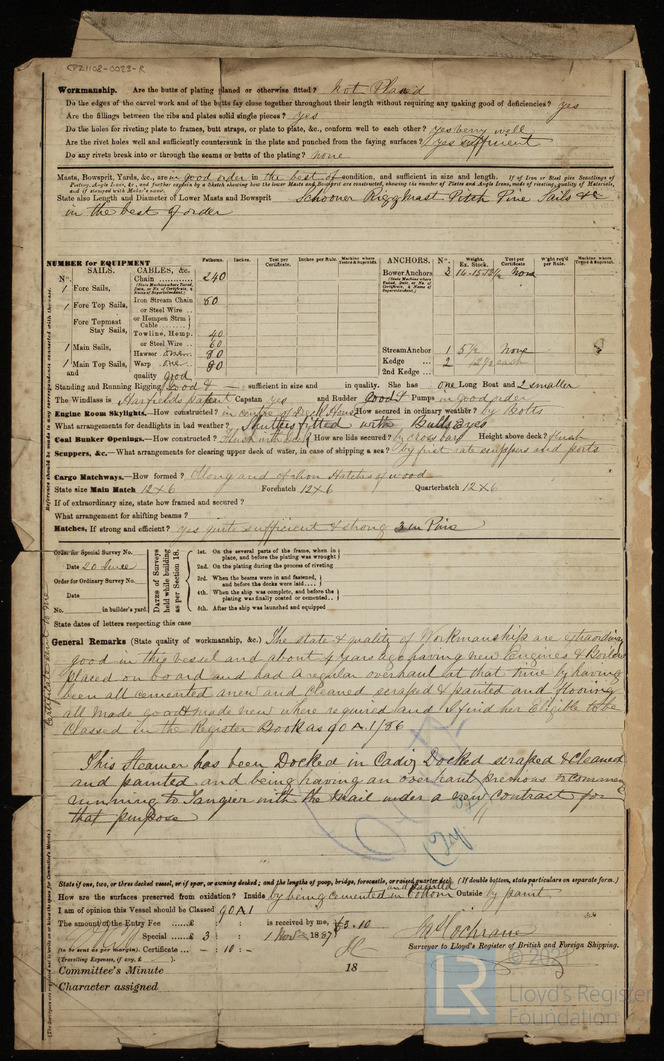 CPZ1108-0023-R
Workmanship. Are the butts of plating planed or otherwise fitted? Not Plan'd
Do the edges of the carvel work and of the butts lay close together throughout their length without requiring any making good of deficiencies? yes
Are the fillings between the ribs and plates solid single pieces? yes
Do the holes for riveting plate to frames, butt straps, or plate to plate, &c., conform well to each other? yes very well
Are the rivet holes well and sufficiently countersunk in the plate and punched from the faying surfaces? yes sufficient
Do any rivets break into or through the seams or butts of the plating? none
Masts, Bowsprit, Yards, &c., are in good order in the best of condition, and sufficient in size and length. If of Iron or Steel give Scantlings of
Plating, Angle Irons, &c., and further explain by a Sketch showing how the lower Masts and Bowsprit are constructed, showing the number of Plates and Angle Irons, mode of riveting, quality of Materials,
and if stamped with Maker's name.
State also Length and Diameter of Lower Masts and Bowsprit Schooner Rigg Mast Pitch Pine Sails &c
in the best of order
NUMBER for EQUIPMENT
SAILS. CABLES, &c. Fathoms. Inches. Test per Certificate. Inches per Rule. Machine where Tested & Suprntdt. ANCHORS. No. Weight. Ex. Stock. Test per Certificate W'ght req'd per Rule. Machine where Tested & Suprntdt.
No. Chain 240 Bower Anchors 3 None
1 Fore Sails,
1 Fore Top Sails, Iron Stream Chain 60
or Steel Wire
Fore Topmast Stay Sails, or Hempen Strm Cable
Towline, Hemp. 40
1 Main Sails, or Steel Wire 60 Stream Anchor 1 5½ None
and Hawser one 80 Kedge 2 2½ each
1 Main Top Sails, Warp one 80 2nd Kedge
quality good
Standing and Running Rigging Good & sufficient in size and in quality. She has one Long Boat and 2 smaller
The Windlass is Harfields patent Capstan yes and Rudder Good & Pumps in good order
Engine Room Skylights.—How constructed? in centre of Deck House How secured in ordinary weather? by Bolts
What arrangements for deadlights in bad weather? Shutters fitted with Bulls eyes
Coal Bunker Openings.—How constructed? Flush with deck How are lids secured? by cross bars Height above deck? flush
Scuppers, &c.—What arrangements for clearing upper deck of water, in case of shipping a sea? by first rate scuppers and ports
Cargo Hatchways.—How formed? Oblong and of iron Hatches of wood
State size Main Hatch 12 x 6 Forehatch 12 x 6 Quarterhatch 12 x 6
If of extraordinary size, state how framed and secured?
What arrangement for shifting beams?
Hatches, If strong and efficient? yes quite sufficient & strong 3 in Pine
Order for Special Survey No.
Date 20 June
Order for Ordinary Survey No.
Date
No. in builder's yard.
Dates of Surveys held while building as per Section 18.
1st. On the several parts of the frame, when in place, and before the plating was wrought
2nd. On the plating during the process of riveting
3rd. When the beams were in and fastened, and before the decks were laid
4th. When the ship was complete, and before the plating was finally coated or cemented
5th. After the ship was launched and equipped
State dates of letters respecting this case
General Remarks (State quality of workmanship, &c.) The state & quality of Workmanship are extraordinary
good in this vessel and about 4 years ago having new Engines & Boilers
placed on board and had a regular overhaul at that time by having
been all cemented anew and cleaned scraped & painted and flooring
all made good & made new where required and I find her Eligible to be
Classed in the Register Book as 90 A.1/86
This Steamer has been Docked in Cadiz Docked scraped & cleaned
and painted and being having an overhaul previous to commence
running to Tangier with the mail under a new Contract for
that purpose
State if one, two, or three decked vessel, or if spar, or awning decked; and the lengths of poop, bridge, forecastle, or raised quarter deck. (If double bottom, state particulars on separate form.)
How are the surfaces preserved from oxidation? Inside by being cemented in bottom and painted Outside by paint
I am of opinion this Vessel should be Classed 90 A1
The amount of the Entry Fee £ : : is received by me, £3.10
Special £ 3 : : 1 Nov 1887
(to be sent as per margin). Certificate : 10 : Surveyor to Lloyd's Register of British and Foreign Shipping.
(Travelling Expenses, if any, £ ).
Committee's Minute 18
Character assigned
LR
Lloyd's Register
Foundation